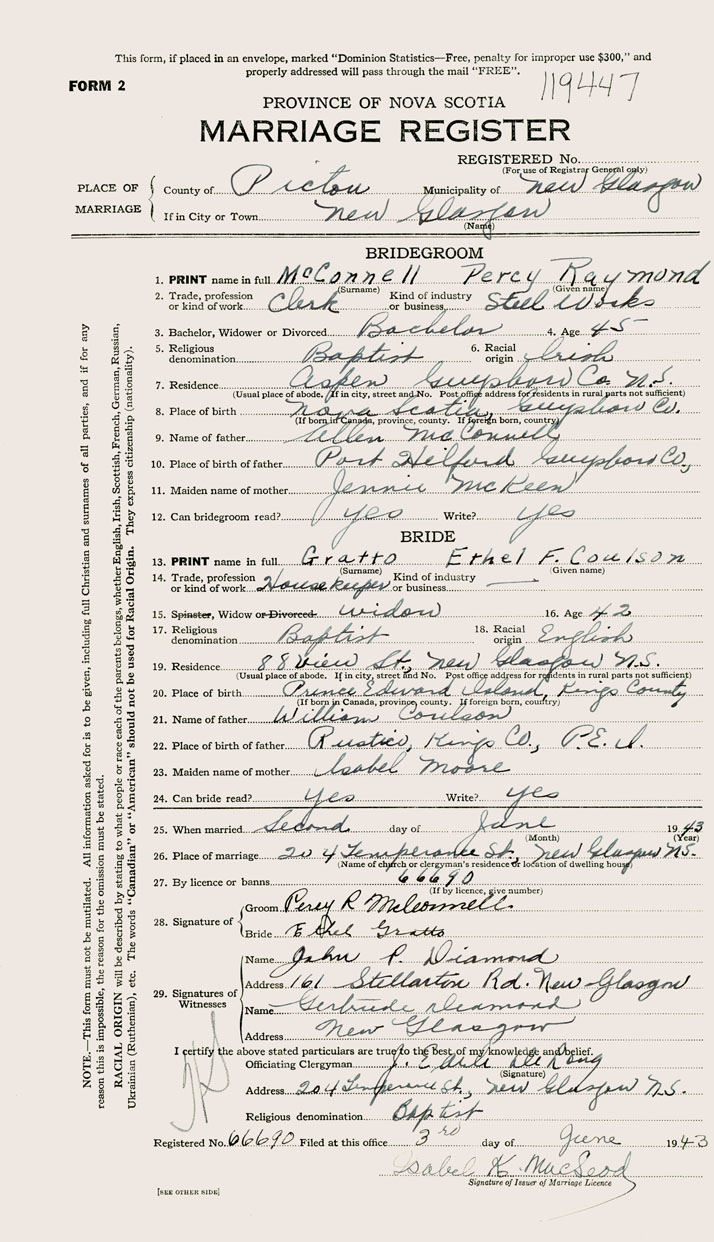 This form, if placed in an envelope, marked "Dominion Statistics—Free, penalty for improper use $300," and
properly addressed will pass through the mail "FREE".
FORM 2
119447
PROVINCE OF NOVA SCOTIA
MARRIAGE REGISTER
REGISTERED No.
(For use of Registrar General only)
PLACE OF MARRIAGE
County of Pictou Municipality of New Glasgow
If in City or Town New Glasgow
(Name)
BRIDEGROOM
1. PRINT name in full McConnell Percy Raymond
(Surname) (Given name)
2. Trade, profession or kind of work Clerk Kind of industry or business Steel Works
3. Bachelor, Widower or Divorced Bachelor 4. Age 45
5. Religious denomination Baptist 6. Racial origin Irish
7. Residence Aspen Guysboro Co. N.S.
(Usual place of abode. If in city, street and No. Post office address for residents in rural parts not sufficient)
8. Place of birth Nova Scotia, Guysboro Co.
(If born in Canada, province, county. If foreign born, country)
9. Name of father Allen McConnell
10. Place of birth of father Port Hilford Guysboro Co,
11. Maiden name of mother Jennie McKeen
12. Can bridegroom read? yes Write? yes
BRIDE
13. PRINT name in full Gratto Ethel F. Coulson
(Surname) (Given name)
14. Trade, profession or kind of work Housekeeper Kind of industry or business —
15. Spinster, Widow or Divorced. widow 16. Age 42
17. Religious denomination Baptist 18. Racial origin English
19. Residence 88 View St., New Glasgow N.S.
(Usual place of abode. If in city, street and No. Post office address for residents in rural parts not sufficient)
20. Place of birth Prince Edward Island, Kings County
(If born in Canada, province, county. If foreign born, country)
21. Name of father William Coulson
22. Place of birth of father Rustico, Kings Co., P.E.I.
23. Maiden name of mother Isabel Moore
24. Can bride read? yes Write? yes
25. When married Second day of June 1943
(Month) (Year)
26. Place of marriage 204 Temperance St., New Glasgow N.S.
(Name of church or clergyman's residence or location of dwelling house)
27. By licence or banns 66690
(If by licence, give number)
28. Signature of
Groom Percy R McConnell
Bride Ethel Gratto
29. Signatures of Witnesses
Name John P. Diamond
Address 161 Stellarton Rd. New Glasgow
Name Gertrude Diamond
Address New Glasgow
I certify the above stated particulars are true to the best of my knowledge and belief.
Officiating Clergyman J. De Long
(Signature)
Address 204 Temperance St., New Glasgow N.S.
Religious denomination Baptist
Registered No. 66690 Filed at this office 3rd day of June 1943
Isabel K. MacLeod
Signature of Issuer of Marriage Licence
[SEE OTHER SIDE]
NOTE.—This form must not be mutilated. All information asked for is to be given, including full Christian and surnames of all parties, and if for any
reason this is impossible, the reason for the omission must be stated.
RACIAL ORIGIN will be described by stating to what people or race each of the parents belongs, whether English, Irish, Scottish, French, German, Russian,
Ukrainian (Ruthenian), etc. The words "Canadian" or "American" should not be used for Racial Origin. They express citizenship (nationality).